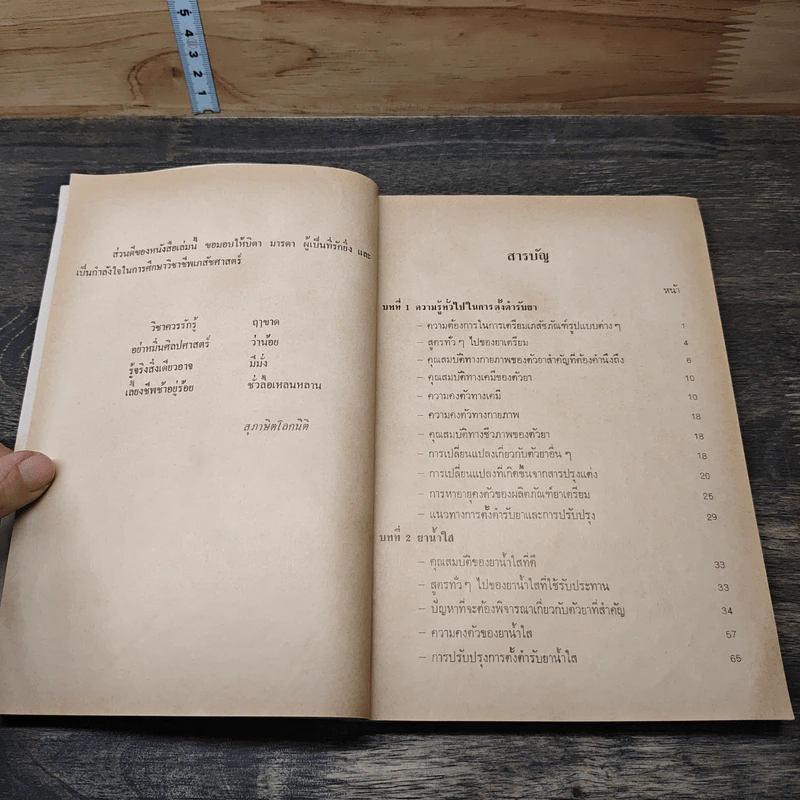 5 4 3 2 1
ส่วนดีของหนังสือเล่มนี้ ขอมอบให้บิดา มารดา ผู้เป็นที่รักยิ่ง และ
เป็นกำลังใจในการศึกษาวิชาชีพเภสัชศาสตร์
วิชาควรรักรู้ ฤๅขาด
อย่าหมิ่นศิลปศาสตร์ ว่าน้อย
รู้จริงสิ่งเดียวอาจ มีมั่ง
เลี้ยงชีพช้าอยู่ร้อย ชั่วลื้อเหลนหลาน
สุภาษิตโลกนิติ
สารบัญ
หน้า
บทที่ 1 ความรู้ทั่วไปในการตั้งตำรับยา
– ความต้องการในการเตรียมเภสัชภัณฑ์รูปแบบต่าง ๆ 1
– สูตรทั่ว ๆ ไปของยาเตรียม 4
– คุณสมบัติทางกายภาพของตัวยาสำคัญที่ต้องคำนึงถึง 6
– คุณสมบัติทางเคมีของตัวยา 10
– ความคงตัวทางเคมี 10
– ความคงตัวทางกายภาพ 18
– คุณสมบัติทางชีวภาพของตัวยา 18
– การเปลี่ยนแปลงเกี่ยวกับตัวยาอื่น ๆ 18
– การเปลี่ยนแปลงที่เกิดขึ้นจากสารปรุงแต่ง 20
– การหาอายุคงตัวของผลิตภัณฑ์ยาเตรียม 25
– แนวทางการตั้งตำรับยาและการปรับปรุง 29
บทที่ 2 ยาน้ำใส
– คุณสมบัติของยาน้ำใสที่ดี 33
– สูตรทั่ว ๆ ไปของยาน้ำใสที่ใช้รับประทาน 33
– ปัญหาที่จะต้องพิจารณาเกี่ยวกับตัวยาที่สำคัญ 34
– ความคงตัวของยาน้ำใส 57
– การปรับปรุงการตั้งตำรับยาน้ำใส 65